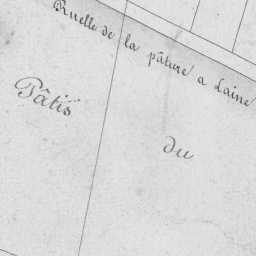 Ruelle de la pâture a Laine
Pâtis
du